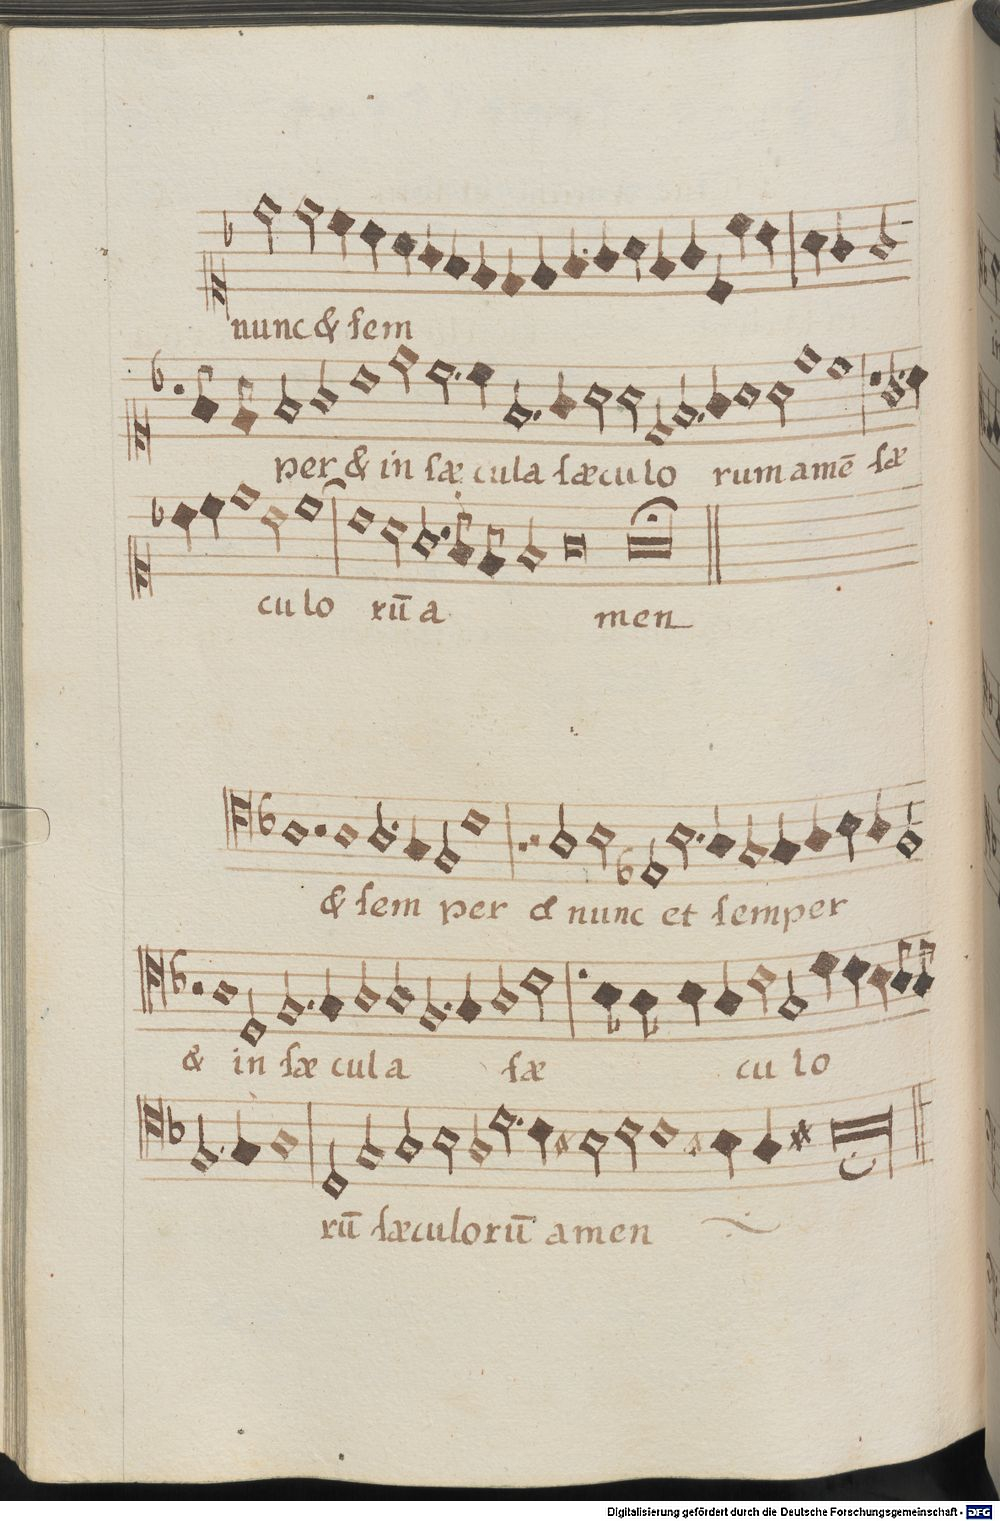 nunc & ſem
per & in ſæ cula ſæculo rum amē ſæ
culo rū a men
& ſem per & nunc et ſemper
& in ſæ cula ſæ cu lo
rū ſæculorū amen
Digitalisierung gefördert durch die Deutsche Forschungsgemeinschaft - DFG